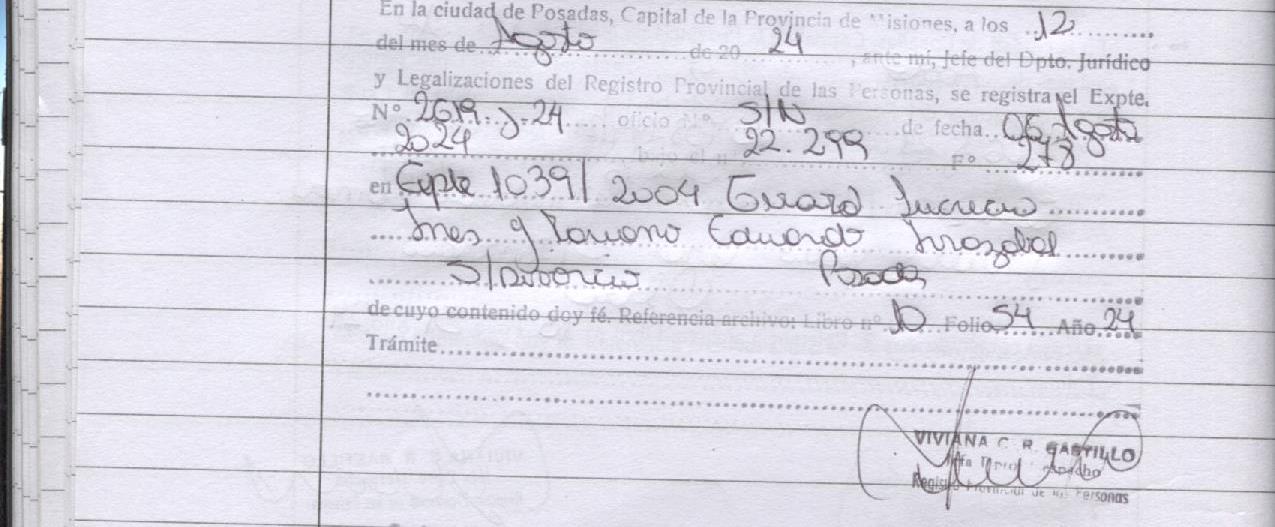 En la ciudad de Posadas, Capital de la Provincia de Misiones, a los 12
del mes de Agosto de 20 24, ante mí, Jefe del Dpto. Jurídico
y Legalizaciones del Registro Provincial de las Personas, se registra el Expte.
Nº 2619-J-24 oficio Nº S/N de fecha 06 Agosto
2024 bajo el nº 22.299 Fº 278
en Expte 1039/2004 Lucrecia
Ines y Mariano Eduardo Irrazabal
S/Divorcio Posadas
de cuyo contenido doy fé. Referencia archivo: Libro nº 10 Folio 54 Año 24
Trámite
VIVIANA C. R. CASTILLO
Registro Provincial de las Personas